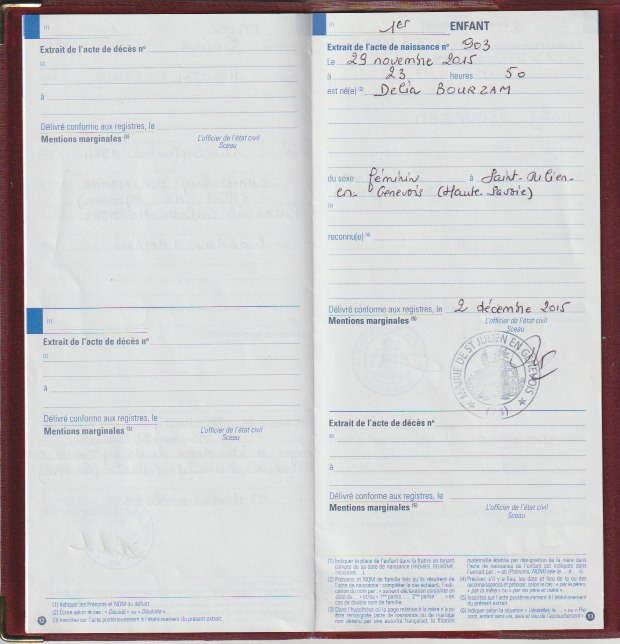 (1)
Extrait de l'acte de décès n°
(2)
à
Délivré conforme aux registres, le
Mentions marginales (3) L'officier de l'état civil
Sceau
(1)
Extrait de l'acte de décès n°
(2)
à
Délivré conforme aux registres, le
Mentions marginales (3) L'officier de l'état civil
Sceau
(1) Indiquer les Prénoms et NOM du défunt.
(2) Écrire selon le cas : « Décédé » ou « Décédée ».
(3) Inscrites sur l'acte postérieurement à l'établissement du présent extrait.
12
(1) 1er ENFANT
Extrait de l'acte de naissance n° 903
Le 29 novembre 2015
à 23 heures 50
est né(e) (2) Delia BOURZAM
du sexe féminin à Saint-Julien-
en-Genevois (Haute-Savoie)
(3)
reconnu(e) (4)
Délivré conforme aux registres, le 2 décembre 2015
Mentions marginales (5) L'officier de l'état civil
Sceau
MAIRIE DE ST JULIEN EN GENEVOIS
Extrait de l'acte de décès n°
(6)
à
Délivré conforme aux registres, le
Mentions marginales (5) L'officier de l'état civil
Sceau
(1) Indiquer la place de l'enfant dans la fratrie en tenant
compte de sa date de naissance (PREMIER, DEUXIÈME,
TROISIÈME, ...)
(2) Prénoms et NOM de famille tels qu'ils résultent de
l'acte de naissance : compléter le cas échéant, l'indi-
cation du nom par : « suivant déclaration conjointe en
date du » et/ou « 1re partie : 2nde partie » en
cas de double nom de famille.
(3) Dans l'hypothèse où la filiation à l'égard de la mère n'a pu
être renseignée faute d'acte de mariage ou de mariage
non détenu par une autorité française, la filiation
maternelle établie par désignation de la mère dans
l'acte de naissance de l'enfant est indiquée dans
l'extrait par : « de (Prénoms, NOM) née le ... à ... ».
(4) Préciser, s'il y a lieu, les date et lieu de la ou des
reconnaissances et préciser, selon le cas « par le père »,
« par la mère » ou « par les père et mère ».
(5) Inscrites sur l'acte postérieurement à l'établissement
du présent extrait.
(6) Indiquer selon la situation : « Décédé(e) le... » ou « Pré-
nom, enfant sans vie, date et lieu de l'accouchement ».
13